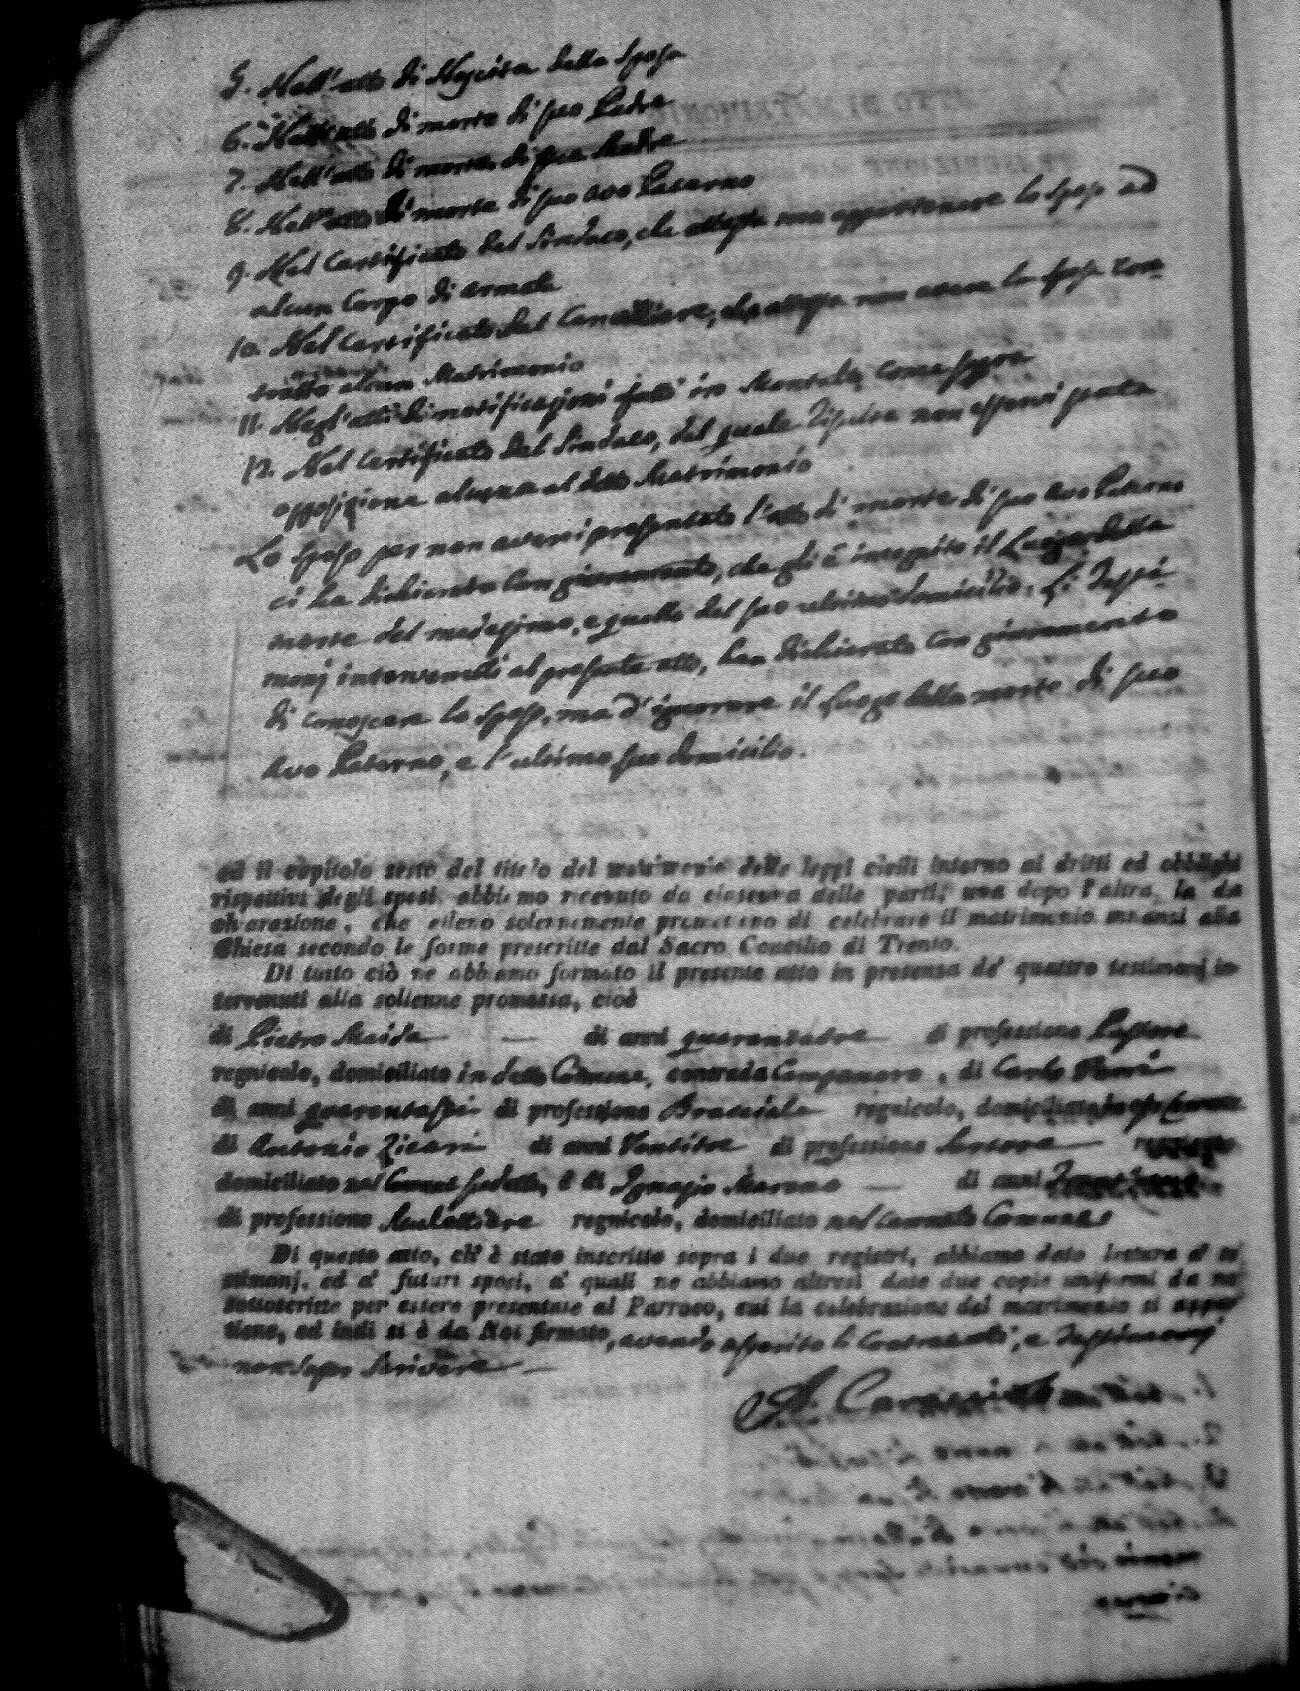 5. Nell'atto di Nascita della Sposa
6. Nell'atto di morte di suo Padre
7. Nell'atto di morte di sua Madre
8. Nell'atto di morte di suo avo Paterno
9. Nel Certificato del Sindaco, che attesta non appartenere lo sposo ad
alcun Corpo di armata
10. Nel Certificato del Cancelliere, che attesta non avere lo sposo con
tratto alcun Matrimonio
11. Negl'atti di notificazioni fatti in Montalto, come sopra
12. Nel Certificato del Sindaco, dal quale risulta non essersi fatta
opposizione alcuna al detto Matrimonio
Lo sposo per non aversi presentato l'atto di morte di suo avo Paterno
ci ha dichiarato con giuramento, che gli è incognito il luogo della
morte del medesimo, e quello del suo ultimo domicilio. Li Testi
monj intervenuti al presente atto, han dichiarato con giuramento
di conoscere lo sposo, ma d'ignorare il luogo della morte di suo
avo Paterno, e l'ultimo suo domicilio.
ed il capitolo sesto del titolo del matrimonio delle leggi civili intorno ai dritti ed obblighi
rispettivi degli sposi, abbiamo ricevuto da ciascuna delle parti, una dopo l'altra, la di
chiarazione, che elleno solennemente promettono di celebrare il matrimonio innanzi alla
Chiesa secondo le forme prescritte dal Sacro Concilio di Trento.
Di tutto ciò ne abbiamo formato il presente atto in presenza de' quattro testimonj in-
tervenuti alla solienne promessa, cioè
di Pietro Maida di anni quarantatre di professione Pastore
regnicolo, domiciliato in detto Comune, contrada Campanaro, di Carlo
di anni quarantasei di professione Bracciale regnicolo, domiciliato
di Antonio Zicari di anni Ventitre di professione Sartore
domiciliato nel Comune suddetto, e di Ignazio Marano di anni
di professione Mulattiere regnicolo, domiciliato nel cennato Comune
Di questo atto, ch'è stato inscritto sopra i due registri, abbiamo dato lettura a' te
stimonj, ed a' futuri sposi, a' quali ne abbiamo altresì date due copie uniformi da noi
sottoscritte per essere presentate al Parroco, cui la celebrazione del matrimonio si appar
tiene, ed indi si è da Noi firmato, avendo asserito li Contraenti, e Testimonj
non saper scrivere